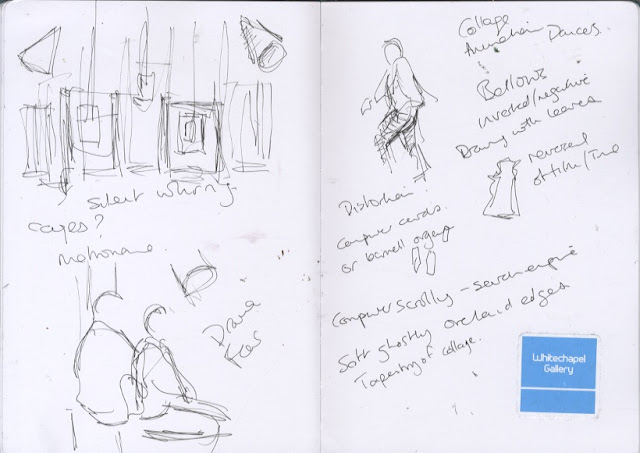 Silent whirring
cages?
Metronome.
Drama
Collage
Dances.
Bellows
inverted/negative
Drawing with leaves
reversal
of film/Time
Distortion?
Computer cards.
or barrell organ
Computer Scrolly –
Soft ghostly overlaid edges
Tapestry of collage.
Whitechapel
Gallery